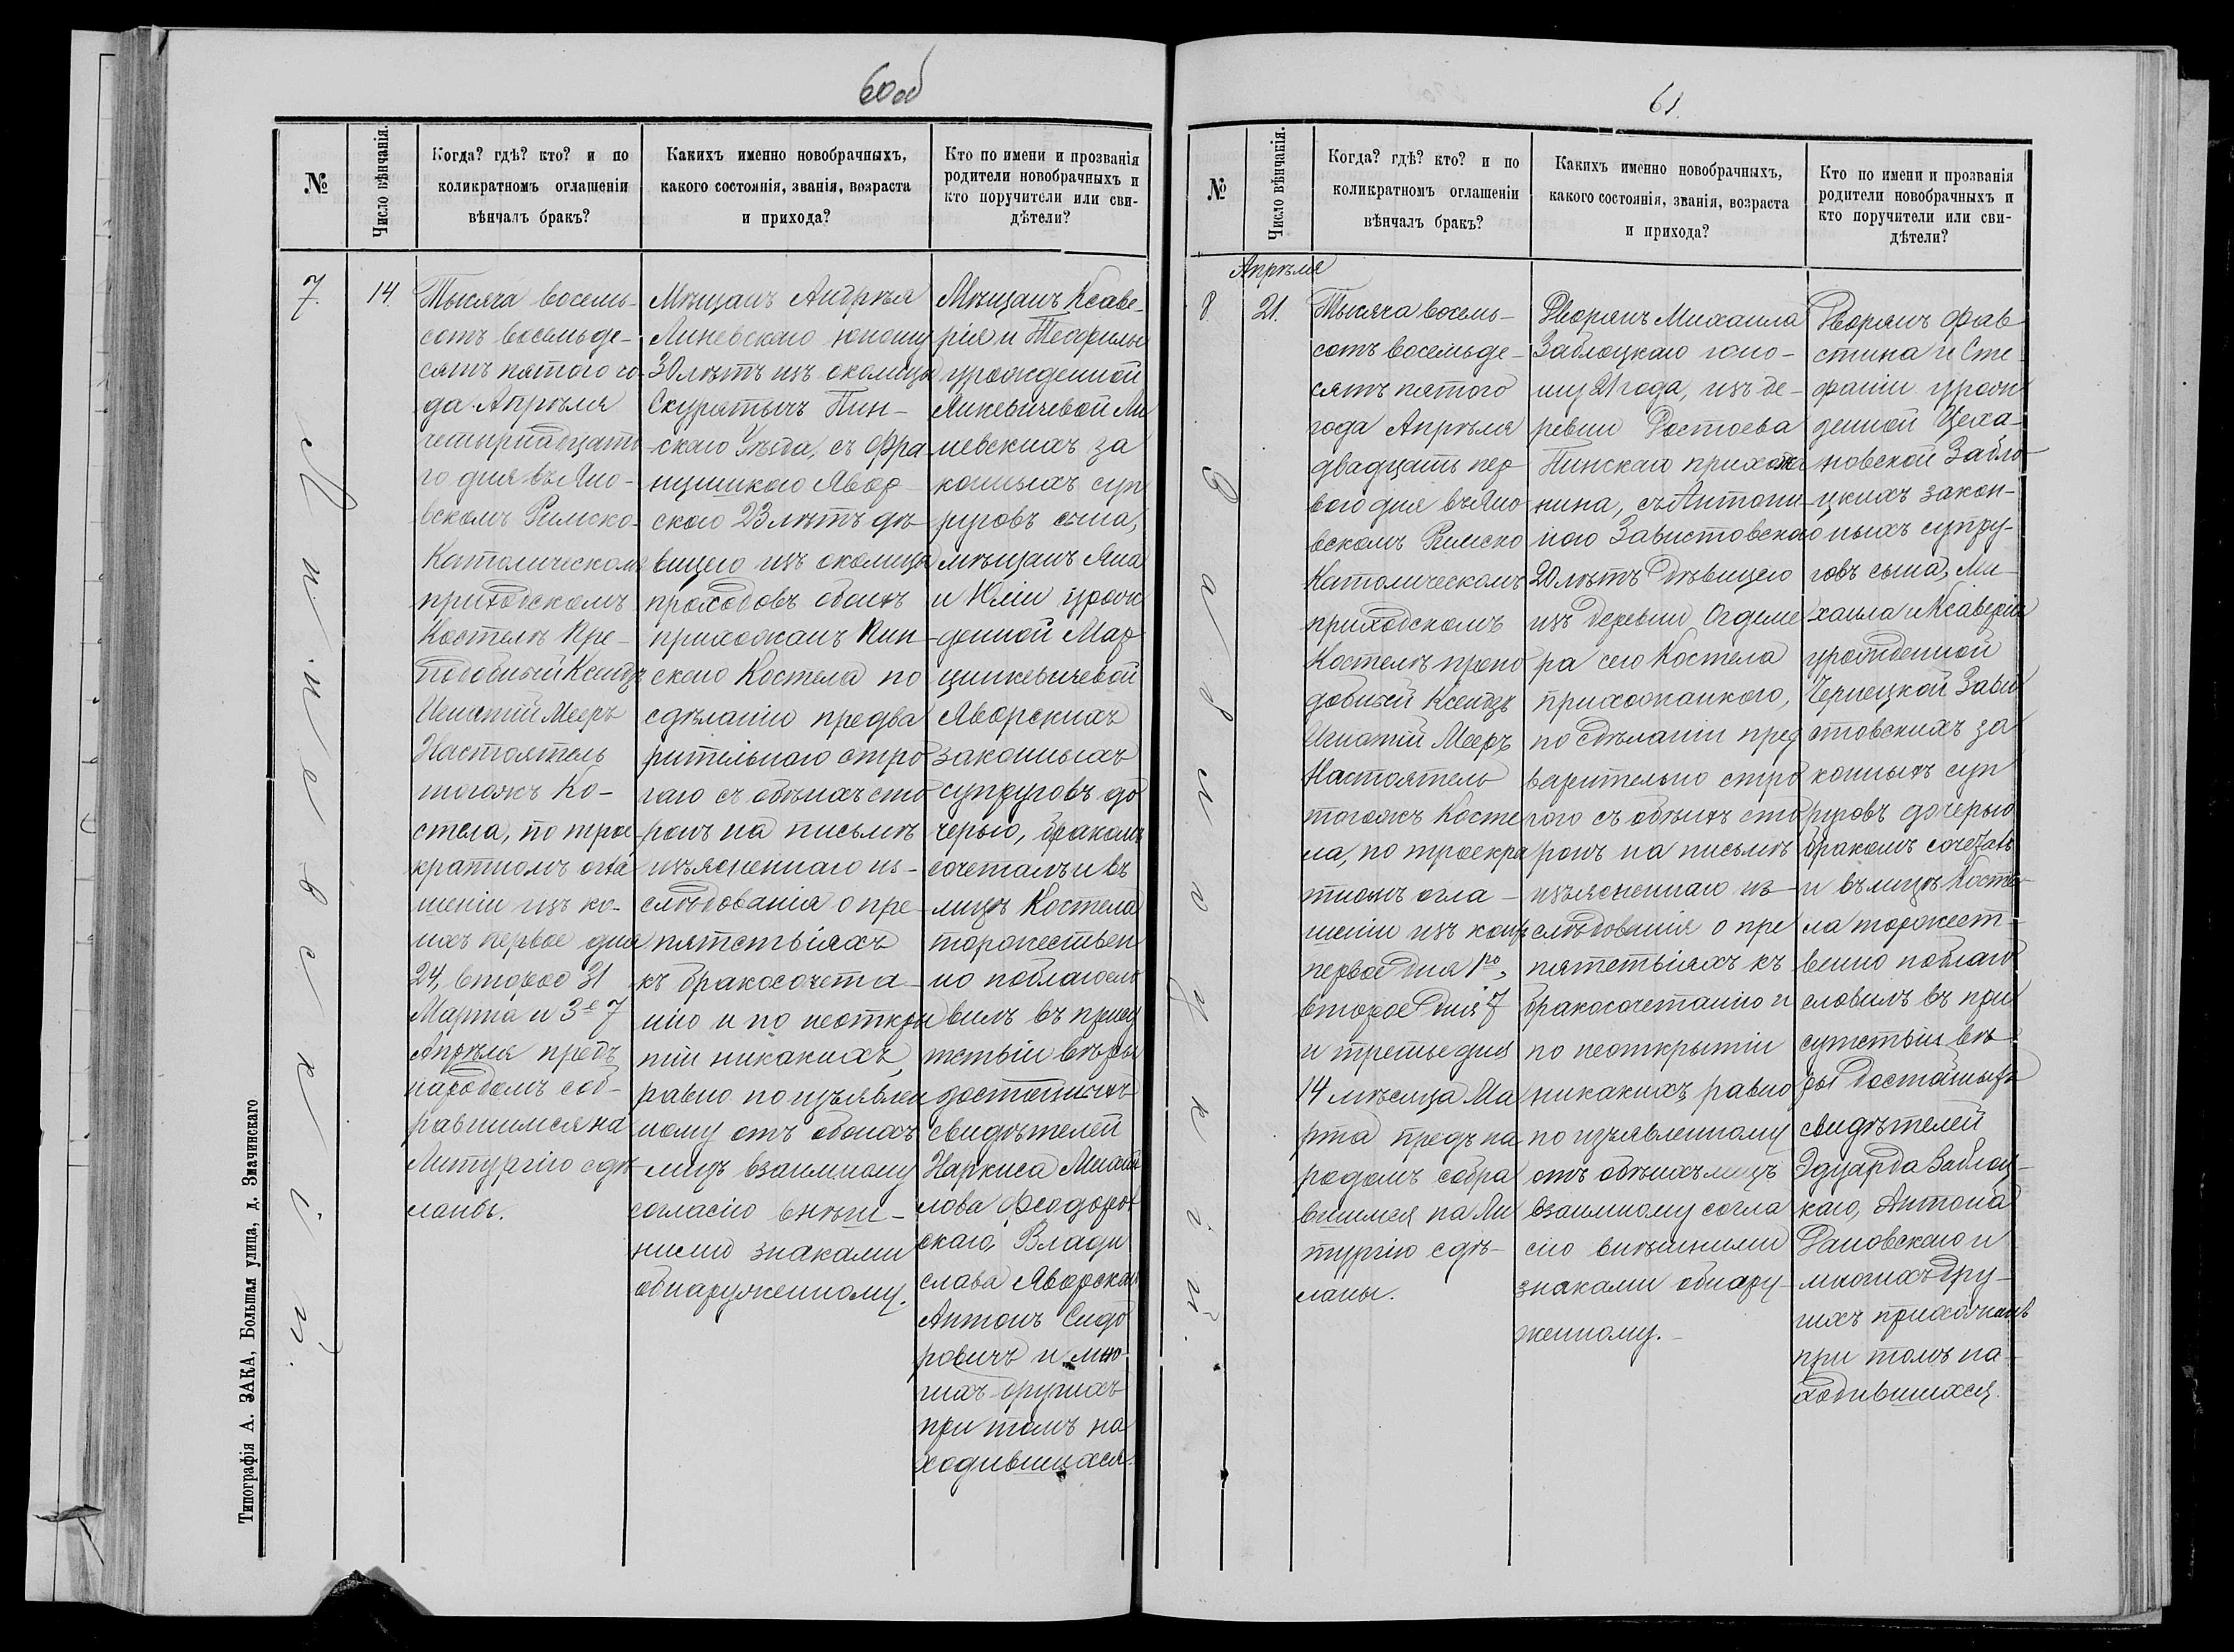 60 об
№
Число вѣнчанія.
Когда? гдѣ? кто? и по
коликратномъ оглашеніи
вѣнчалъ бракъ?
Какихъ именно новобрачныхъ,
какого состоянія, званія, возраста
и прихода?
Кто по имени и прозванія
родители новобрачныхъ и
кто поручители или сви-
дѣтели?
7.
Линевскій.
14.
Тысяча восемь-
сотъ восемьде-
сятъ пятаго го-
да Апрѣля
четырнадцато
го дня въ Яно-
вскомъ Римско-
Католическомъ
приходскомъ
Костелѣ Пре-
подобный Ксендзъ
Игнатій Мееръ
Настоятель
тогожъ Ко-
стела, по трое
кратномъ огла
шеніи изъ ко-
ихъ первое дня
24, второе 31
Марта и 3е 7
Апрѣля предъ
народомъ соб-
равшимся на
Литургію сдѣ
ланы.
Мѣщанъ Андрея
Линевскаго юношу
30 лѣтъ изъ околицы
Скуратычъ Пин-
скаго Уѣзда, съ Фра
нцишкою Явор-
скою 23 лѣтъ дѣ
вицею изъ околицы
приходовъ обоихъ
прихожанъ Пин-
скаго Костела по
сдѣланію предва
рительнаго стро
гаго съ обѣихъ сто
ронъ на письмѣ
изъясненнаго из-
слѣдованія о пре-
пятствіяхъ
къ бракосочета-
нію и по неоткры
тіи никакихъ,
равно по изъявлен
ному отъ обоихъ
лицъ взаимному
согласію внѣш-
ними знаками
обнаруженному.
Мѣщанъ Ксаве-
рія и Теофилы
урожденной
Янкевичевой Ли
невскихъ за
конныхъ суп
руговъ сына,
мѣщанъ Яна
и Юліи урож
денной Мар
цинкевичевой
Яворскихъ
законныхъ
супруговъ до
черью, бракомъ
сочеталъ и въ
лицѣ Костела
торжествен
но поблагосло
вилъ въ прису
тствіи вѣры
достойныхъ
свидѣтелей
Наркиса Михай
лова Феодоров
скаго, Влади
слава Яворскаго
Антонъ Сидо
ровичъ и мно-
гихъ другихъ
при томъ на
ходившихся.
Типографія А. ЗАКА, Большая улица, д. Значинскаго
61.
№
Число вѣнчанія.
Когда? гдѣ? кто? и по
коликратномъ оглашеніи
вѣнчалъ бракъ?
Какихъ именно новобрачныхъ,
какого состоянія, званія, возраста
и прихода?
Кто по имени и прозванія
родители новобрачныхъ и
кто поручители или сви-
дѣтели?
Апрѣля
8
Заблоцкій.
21.
Тысяча восемь-
сотъ восемьде-
сятъ пятого
года Апрѣля
двадцать пер
вого дня въ Яно
вскомъ Римско
Католическомъ
приходскомъ
Костелѣ препо
добный Ксендзъ
Игнатій Мееръ
Настоятель
тогожъ Косте
ла, по троекра
тномъ огла-
шеніи изъ коихъ
первое дня 1го,
второе дня 7
и третье дня
14 мѣсяца Ма
рта предъ на
родомъ собра
вшимся на Ли
тургію сдѣ-
ланы.
Дворянъ Михаила
Заблоцкаго юно-
шу 21 года, изъ де-
ревни Достоева
Пинскаго прихожа
нина, съ Антони-
ною Завистовскою
20 лѣтъ дѣвицею
изъ деревни Огдеме
ра сего Костела
прихожанкою,
по сдѣланіи пред
варительно стро
гого съ обѣихъ сто
ронъ на письмѣ
изъясненнаго из-
слѣдованія о пре
пятствіяхъ къ
бракосочетанію и
по неоткрытіи
никакихъ равно
по изъявленному
отъ обѣихъ лицъ
взаимному согла
сію внѣшними
знаками обнару
женному.-
Дворянъ Фав
стина и Сте-
фаніи урож
денной Цеха-
новской Забло
цкихъ закон-
ныхъ супру-
говъ сына, Ми-
хаила и Ксаверіи
урожденной
Чернецкой Зави
стовскихъ за
конныхъ суп
руговъ дочерью
бракомъ сочеталъ
и въ лицѣ Косте-
ла торжест-
венно поблаго
словилъ въ при
сутствіи вѣ-
ры достойныхъ
свидѣтелей
Эдуарда Заблоц-
каго, Антона
Дановскаго и
многихъ дру-
гихъ прихожанъ
при томъ на-
ходившихся.